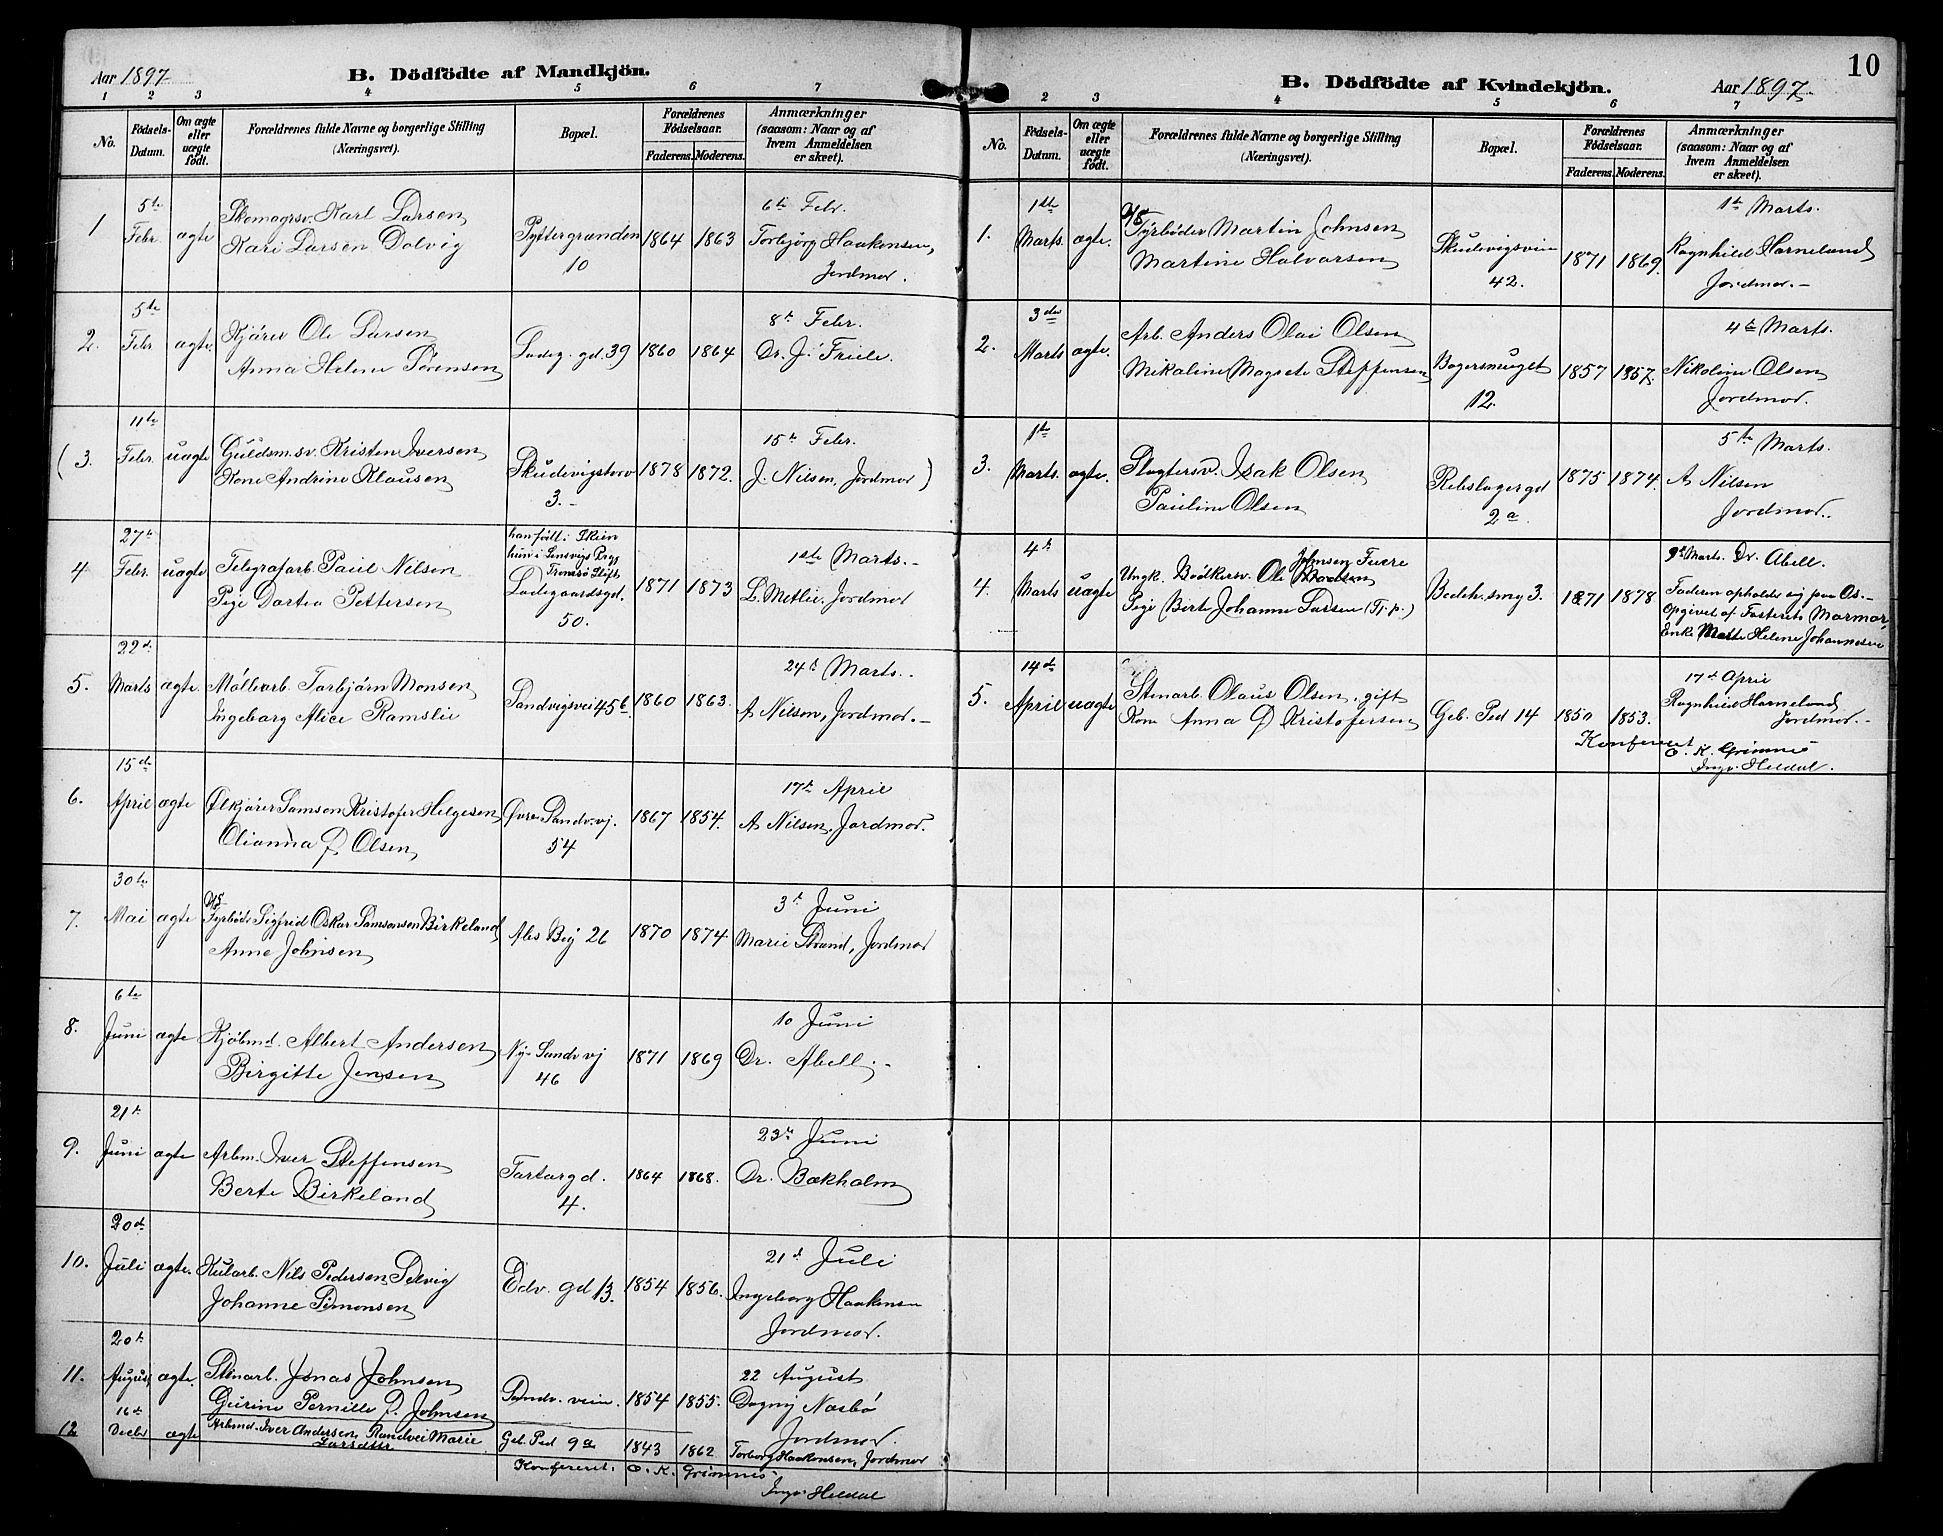 Aar 1897
B. Dödfödte af Mandkjön.
1 2 3 4 5 6 7
No.
Födsels-Datum.
Om ægte eller uægte födt.
Forældrenes fulde Navne og borgerlige Stilling (Næringsvei).
Bopæl.
Forældrenes Födselsaar.
Faderens. Moderens.
Anmærkninger (saasom: Naar og af hvem Anmeldelsen er skeet).
1 5te Febr. ægte Skomagrsv. Karl Larsen
Kari Larsen Dolvig
Pyttergränden 10
1864 1863
6te Febr.
Torbjörg Haakensen,
Jordmor.
2. 5te Febr ægte. Kjörer Ole Larsen
Anna Helene Sörensen
Ladeg. gd. 39 1860 1864
8de Febr.
Dr. J. Friele.
(3. 11te Febr. uægte Guldsm.sv. Kristen Iversen
Kone Andrine Klausen
Skudevigstorv 3.-
1878 1872.
15de Febr.
J. Nilsen, Jordmor)
4 27de Febr. uægte Telegrafarb. Paul Nilsen
Pige Dortea Pettersen
han födt i Skien
hun i Lensvigs Prgj
Tromsö Stift
Ladegaardsgd.
50.
1871 1873
1ste Marts.-
L. Metlie, Jordmor
5. 22de Marts ægte. Möllearb. Torbjörn Monsen
Ingeborg Alice Ramslie
Sandvigsvei 45b. 1860 1863.
24de Marts..
A Nilsen, Jordmor.-
6. 15de April ægte Ölkjörer Samson Kristofer Helgesen
Olianna D. Olsen
Övre Sandv.vj.
54
1867 1854.
17de April
A Nilsen, Jordmor.
7. 30te Mai ægte D/S
Fyrböd. Sigfrid Oskar Samsonsen Birkeland
Anne Johnsen
Abs Beij 26 1870 1874
3de Juni
Marie Strand, Jordmor
8. 6te Juni ægte Kjöbmd. Albert Andersen
Birgitte Jensen
Nye Sandv vj
46
1871 1869
10 Juni
Dr. Abell.-
9. 21de Juni ægte Arbm. Iver Steffensen
Berte Birkeland
Tartargd.
4.
1864 1868.
23de Juni
Dr. Bækholm
10. 20de Juli ægte. Kularb. Nils Pedersen Selvig
Johanne Simonsen
Edv. gd 13. 1854 1856.
21de Juli
Ingeborg Haakensen
Jordmor.
11. 20de August ægte. Stenarb. Jonas Johnsen
Gurine Pernille D. Johnsen
Sandv. veien. 1854 1855.
22 August
Dagny Næsbö
Jordmor.
12 16de Decbr ægte Arbmd. Iver Andersen, Randvei Marie
Larsdttr.
Geb. Ped 9a 1843 1862 Torborg Haakensen, Jordmor
Konfereret: O. K. Grimnes
Ingv. Heldal
B. Dödfödte af Kvindekjön.
Aar 1897.
10
2 3 4 5 6 7
No.
Födsels-Datum.
Om ægte eller uægte födt.
Forældrenes fulde Navne og borgerlige Stilling (Næringsvei).
Bopæl.
Forældrenes Födselsaar.
Faderens. Moderens.
Anmærkninger (saasom: Naar og af hvem Anmeldelsen er skeet).
1. 1ste Marts. ægte. D/S
Fyrböder Martin Johnsen
Martine Halvorsen
Skudevigsveien
42.
1871 1869.
1ste Marts.
Ragnhild Harneland
Jordmor.-
2. 3die Marts ægte. Arb. Anders Olai Olsen
Mikaline Magrete Steffensen
Bagersmuget
12.
1857 1857.
4te Marts.
Nikoline Olsen
Jordmor.
3. 1ste Marts. ægte. Slagtersv. Isak Olsen
Pauline Olsen
Rebslagergd
2a.
1875 1874.
5te Marts.
A Nilsen
Jordmor.
4. 4de Marts uægte Ungk. Bödkersv. Ole Johnsen
Pige Berte Johanne Larsen (Tj.p.)
Bedeh. smg 3. 1871 1878
9de Marts. Dr. Abell.
Faderen opholder sig paa Os.-
Opgivet af Fosterets Mormor,
Enke Mette Helene Johannesen
5. 14de April uægte Stenarb. Olaus Olsen, gift
Kone Anna D. Kristofersen
Geb. Ped 14 1850 1853.
17de April
Ragnhild Harneland
Jordmor.-
Konfereret
O. K. Grimnes
Ingv. Heldal.